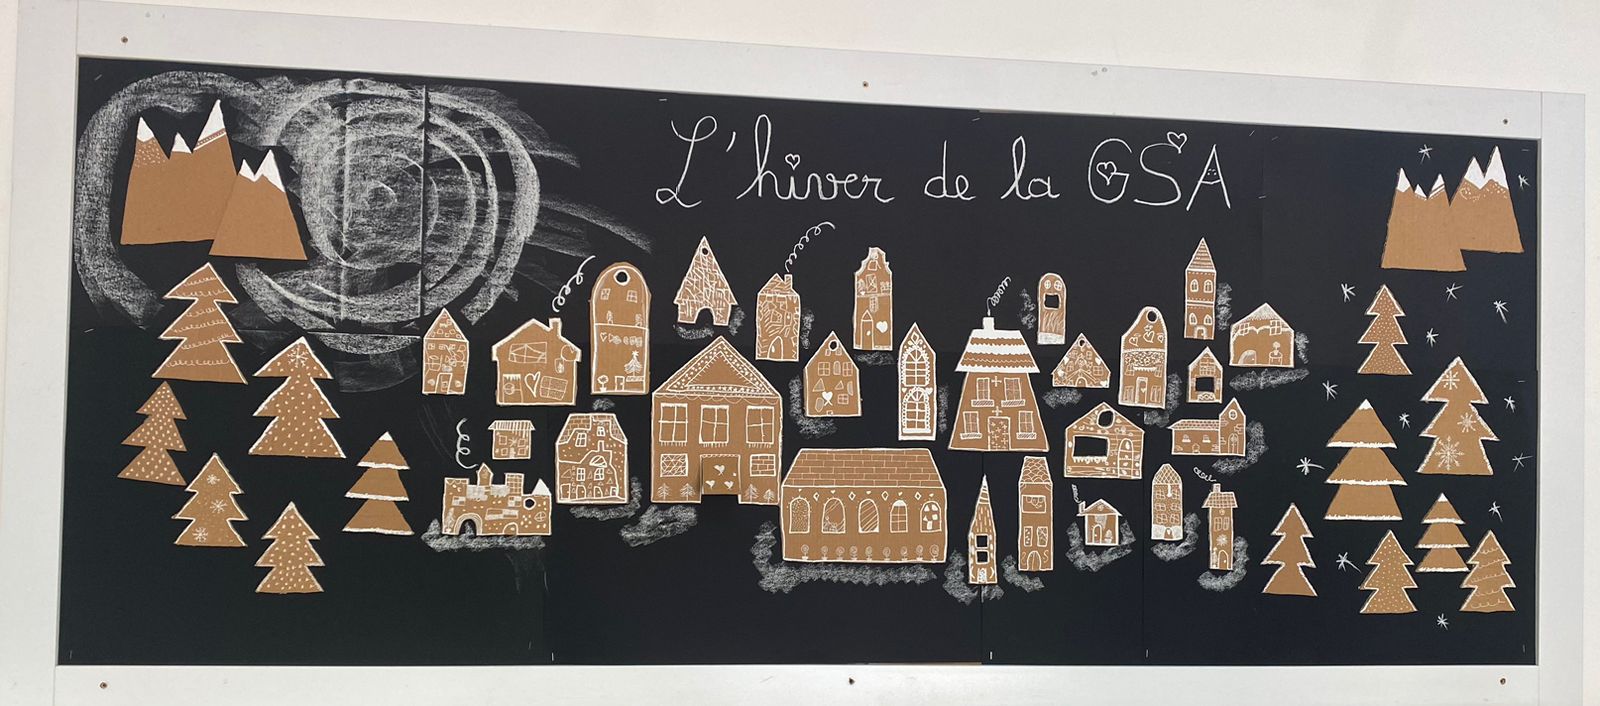 L'hiver de la GSA